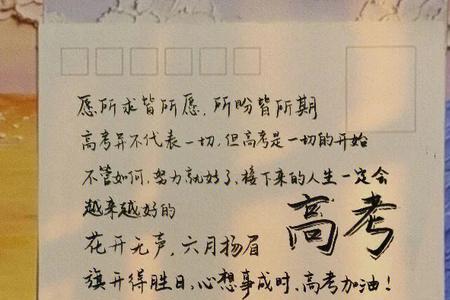 愿所求皆所愿，所盼皆所期
高考并不代表一切，但高考是一切的开始
不管如何，努力就好了、接下来的人生一定会
越来越好的
高考
花开无声，六月扬眉
旗开得胜日，心想事成时、高考加油！